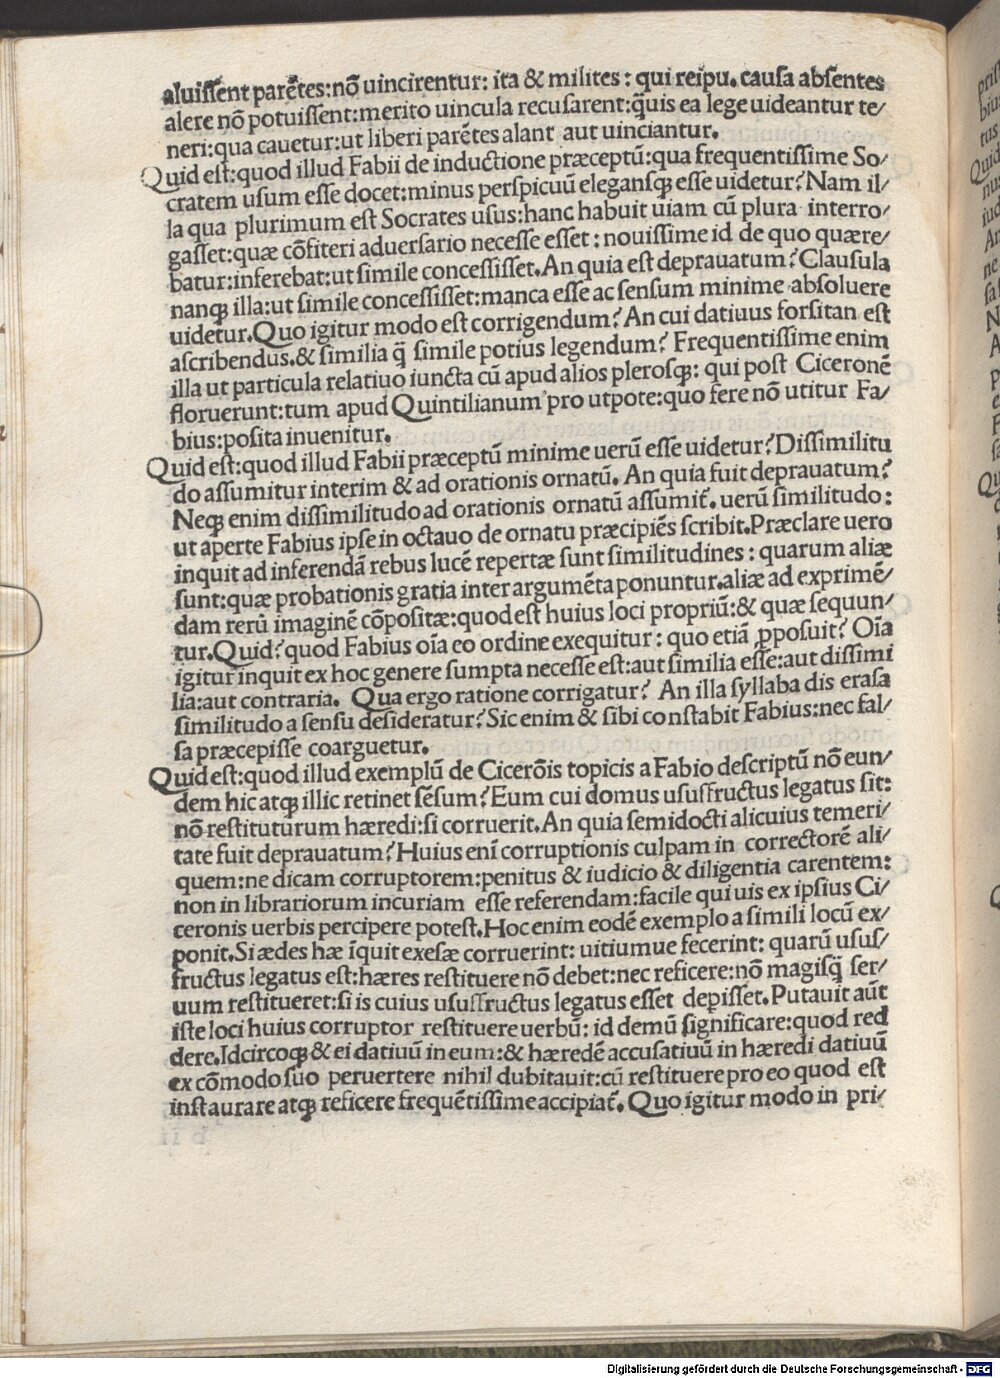 aluiſſent parētes:nō uincirentur: ita & milites : qui reipu. cauſa abſentes
alere nō potuiſſent:merito uincula recuſarent:q̄uis ea lege uideantur te/
neri:qua cauetur:ut liberi parētes alant aut uinciantur.
Quid eſt:quod illud Fabii de inductione præceptū:qua frequentiſſime So/
cratem uſum eſſe docet:minus perſpicuū eleganſqꝫ eſſe uidetur? Nam il/
la qua plurimum eſt Socrates uſus:hanc habuit uiam cū plura interro/
gaſſet:quæ cōfiteri aduerſario neceſſe eſſet : nouiſſime id de quo quære/
batur:inferebat:ut ſimile conceſſiſſet. An quia eſt deprauatum? Clauſula
nanqꝫ illa:ut ſimile conceſſiſſet:manca eſſe ac ſenſum minime abſoluere
uidetur. Quo igitur modo eſt corrigendum? An cui datiuus forſitan eſt
aſcribendus. & ſimilia q̄ ſimile potius legendum? Frequentiſſime enim
illa ut particula relatiuo iuncta cū apud alios pleroſqꝫ: qui poſt Ciceronē
floruerunt:tum apud Quintilianum pro utpote:quo fere nō utitur Fa/
bius:poſita inuenitur.
Quid eſt:quod illud Fabii præceptū minime uerū eſſe uidetur? Diſſimilitu
do aſſumitur interim & ad orationis ornatū. An quia fuit deprauatum?
Neqꝫ enim diſſimilitudo ad orationis ornatū aſſumit̄. uerū ſimilitudo :
ut aperte Fabius ipſe in octauo de ornatu præcipiēs ſcribit. Præclare uero
inquit ad inferendā rebus lucē repertæ ſunt ſimilitudines : quarum aliæ
ſunt:quæ probationis gratia inter argumēta ponuntur.aliæ ad exprimē/
dam rerū imaginē cōpoſitæ:quod eſt huius loci propriū:& quæ ſequun/
tur. Quid? quod Fabius oīa eo ordine exequitur : quo etiā ꝓpoſuit? Oīa
igitur inquit ex hoc genere ſumpta neceſſe eſt:aut ſimilia eſſe:aut diſſimi
lia:aut contraria. Qua ergo ratione corrigatur? An illa ſyllaba dis eraſa
ſimilitudo a ſenſu deſideratur? Sic enim & ſibi conſtabit Fabius:nec fal/
ſa præcepiſſe coarguetur.
Quid eſt:quod illud exemplū de Cicerōis topicis a Fabio deſcriptū nō eun/
dem hic atqꝫ illic retinet ſēſum? Eum cui domus uſuſfructus legatus ſit:
nō reſtituturum hæredi:ſi corruerit. An quia ſemidocti alicuius temeri/
tate fuit deprauatum? Huius enī corruptionis culpam in correctorē ali/
quem:ne dicam corruptorem:penitus & iudicio & diligentia carentem:
non in librariorum incuriam eſſe referendam:facile qui uis ex ipſius Ci/
ceronis uerbis percipere poteſt. Hoc enim eodē exemplo a ſimili locū ex/
ponit. Si ædes hæ īquit exeſæ corruerint: uitiumue fecerint: quarū uſuſ/
fructus legatus eſt:hæres reſtituere nō debet:nec reficere:nō magiſq̄ ſer/
uum reſtitueret:ſi is cuius uſuſfructus legatus eſſet depiſſet. Putauit aūt
iſte loci huius corruptor reſtituere uerbū: id demū ſignificare:quod red
dere. Idcircoqꝫ & ei datiuū in eum:& hæredē accuſatiuū in hæredi datiuū
ex cōmodo ſuo peruertere nihil dubitauit:cū reſtituere pro eo quod eſt
inſtaurare atqꝫ reficere frequētiſſime accipiat̄. Quo igitur modo in pri/
Digitalisierung gefördert durch die Deutsche Forschungsgemeinschaft - DFG